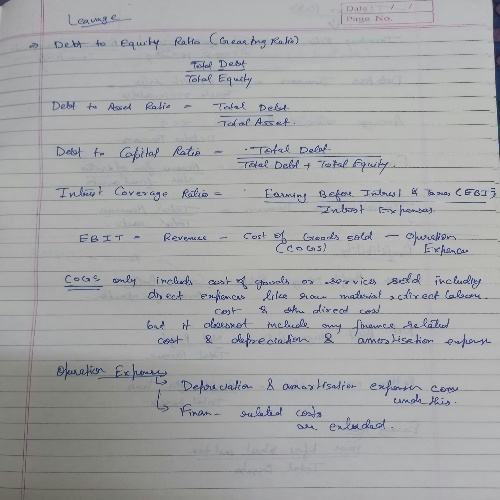 Date: / /
Page No.
Leavage
⇒ Debt to Equity Ratio (Gearing Ratio)
Total Debt
Total Equity
Debt to Asset Ratio = Total Debt
Total Asset.
Debt to Capital Ratio = Total Debt
Total Debt + Total Equity.
Intrest Coverage Ratio = Earning Before Intrest & Taxes (EBIT)
Intrest Expenses
EBIT = Revenue - Cost of Goods sold - Operation
(COGS) Expences
COGS only include cost of goods or services sold including
direct expences like raw material & direct labour
cost & othr direct cost
but it doesnot include any finance related
cost & depreciation & amortisation expense
Operation Expenses
↳ Depreciation & amortisation expenses cover
under this.
↳ Finan- related costs
are exluded.